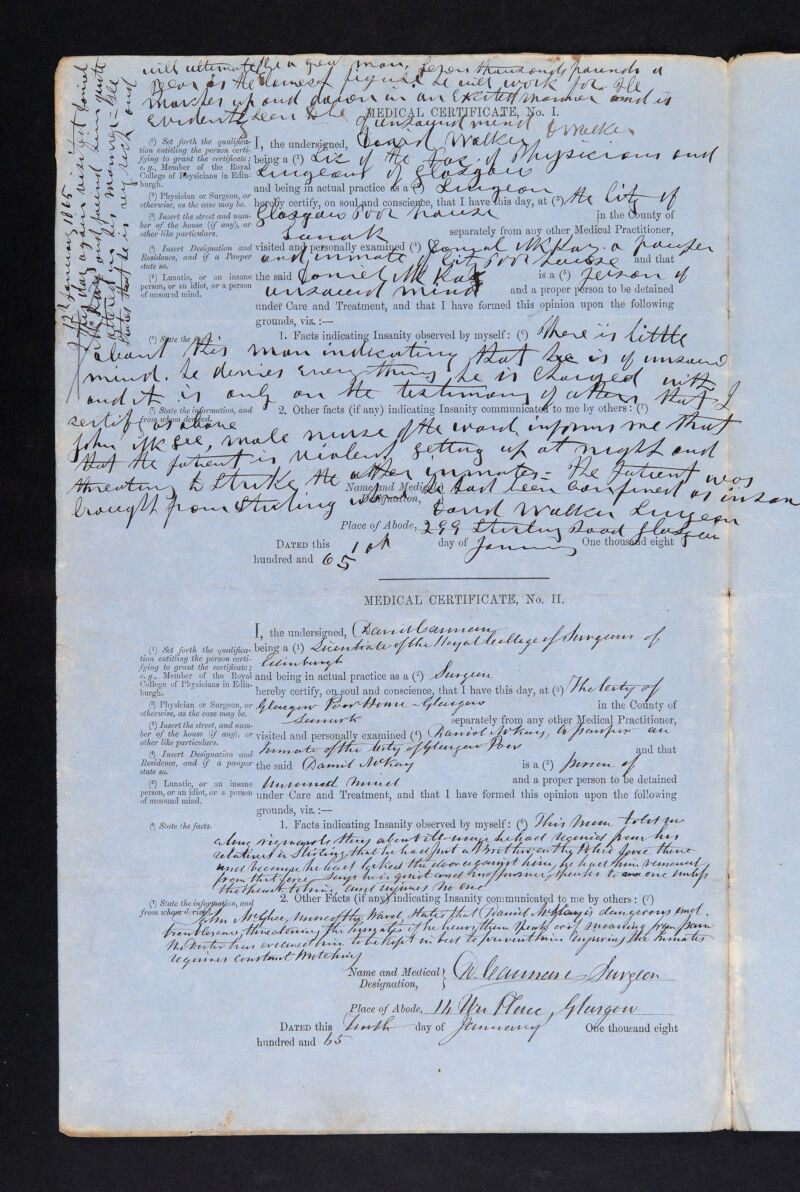 will ultimately be a great man. Seven thousand pounds a
year is the lowest figure he will work for. He
marches up and down in an excited manner and is
evidently of unsound mind D Walker
12th January 1865
MEDICAL CERTIFICATE, No. I.
I, the undersigned, David Walker
being a (¹) Lic of the Fac. of Physicians and
Surgeons of Glasgow
and being in actual practice as a (²) Surgeon
hereby certify, on soul and conscience, that I have this day, at (³) the City of
Glasgow Poor house in the County of
Lanark separately from any other Medical Practitioner,
visited and personally examined (⁴) Daniel McKay. a pauper
and inmate of City Poor house and that
the said Daniel McKay is a (⁵) person of
unsound mind and a proper person to be detained
under Care and Treatment, and that I have formed this opinion upon the following
grounds, viz. :—
1. Facts indicating Insanity observed by myself: (⁶) There is little
about this man indicating that he is of unsound
mind. he denies every thing he is charged with
and it is only on the testimony of others that I
certify as above
2. Other facts (if any) indicating Insanity communicated to me by others: (⁷)
John McGee, male nurse of the ward, informs me that
that the patient is violent getting up at night and
threatening to strike the other inmates – The patient was
brought from Stirling where he had been confined as insane
Name and Medical Designation, David Walker Surgeon
Place of Abode, 299 Stirling Road Glasgow
DATED this 10th day of January One thousand eight
hundred and 65
(¹) Set forth the qualifica-
tion entitling the person certi-
fying to grant the certificate;
e. g., Member of the Royal
College of Physicians in Edin-
burgh.
(²) Physician or Surgeon, or
otherwise, as the case may be.
(³) Insert the street and num-
ber of the house (if any), or
other like particulars.
(⁴) Insert Designation and
Residence, and if a Pauper
state so.
(⁵) Lunatic, or an insane
person, or an idiot, or a person
of unsound mind.
(⁶) State the facts.
(⁷) State the information, and
from whom derived.
MEDICAL CERTIFICATE, No. II.
I, the undersigned,
being a (¹) Licentiate of the Royal College of Surgeons of
Edinburgh
and being in actual practice as a (²) Surgeon
hereby certify, on soul and conscience, that I have this day, at (³) The City of
Glasgow Poor House – Glasgow in the County of
Lanark separately from any other Medical Practitioner,
visited and personally examined (⁴) Daniel McKay, a pauper an
Inmate of the City of Glasgow Poor and that
the said Daniel McKay is a (⁵) person of
Unsound mind and a proper person to be detained
under Care and Treatment, and that I have formed this opinion upon the following
grounds, viz. :—
1. Facts indicating Insanity observed by myself: (⁶) This man told me
a long story about ill usage he had received from his
relatives in Stirling, that he had put a Brother in the Police force there
and because he had locked the door against him, he had him removed
from that force. Says he is quiet and speaks to no one unless
they speak to him, and injures no one
2. Other Facts (if any) indicating Insanity communicated to me by others: (⁷)
John McGhee, Nurse of the Ward, states that Daniel McKay is dangerous and
troublesome, threatening the inmates if he hears them speak or if moaning from pain
The Doctor has ordered him to be kept in bed to prevent him injuring the inmates
requires constant watching
Name and Medical Designation, Surgeon
Place of Abode, 14 Place, Glasgow
DATED this Tenth day of January One thousand eight
hundred and 65
(¹) Set forth the qualifica-
tion entitling the person certi-
fying to grant the certificate;
e. g., Member of the Royal
College of Physicians in Edin-
burgh.
(²) Physician or Surgeon, or
otherwise, as the case may be.
(³) Insert the street, and num-
ber of the house (if any), or
other like particulars.
(⁴) Insert Designation and
Residence, and if a pauper
state so.
(⁵) Lunatic, or an insane
person, or an idiot, or a person
of unsound mind.
(⁶) State the facts.
(⁷) State the information, and
from whom derived.